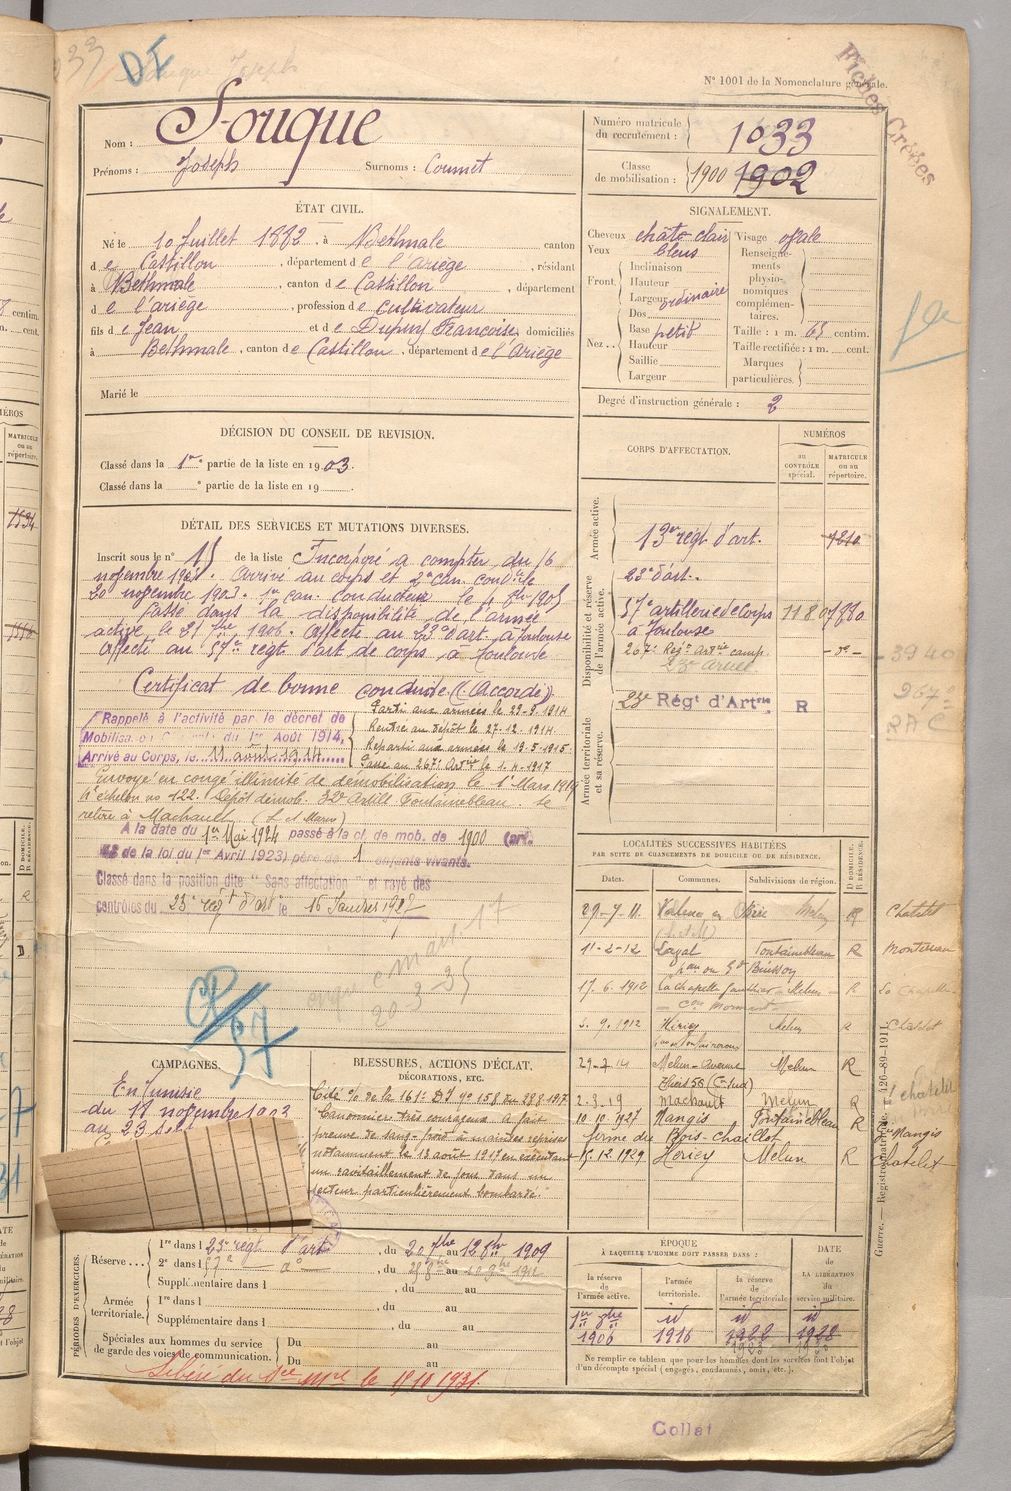 N° 1001 de la Nomenclature générale.
Fiches Créées
DF
Nom : Souque
Prénoms : Joseph Surnoms : Coumet
Numéro matricule du recrutement : 1033
Classe de mobilisation : 1900 1902
ÉTAT CIVIL.
Né le 10 Juillet 1882, à Bethmale canton
de Castillon, département de l'Ariège, résidant
à Bethmale, canton de Castillon, département
de l'ariège, profession de Cultivateur
fils de Jean et de Dupuy Françoise, domiciliés
à Bethmale, canton de Castillon, département de l'Ariège
Marié le
SIGNALEMENT.
Cheveux châts clair Visage ovale
Yeux bleus
Front. Inclinaison
Hauteur
Largeur ordinaire
Nez.. Dos
Base petit
Hauteur
Saillie
Largeur
Renseignements physionomiques complémentaires.
Taille : 1 m. 65 centim.
Taille rectifiée : 1 m. cent.
Marques particulières.
Degré d'instruction générale : 2
DÉCISION DU CONSEIL DE REVISION.
Classé dans la 1re partie de la liste en 1903.
Classé dans la e partie de la liste en 19
DÉTAIL DES SERVICES ET MUTATIONS DIVERSES.
Inscrit sous le n° 15 de la liste Incorporé à compter du 16
novembre 1903. Arrivé au corps et 2e can. condr le
20 novembre 1903. 1er can. Conducteur le 4 8bre 1905
Passé dans la disponibilité de l'armée
active le 21 7bre 1906. Affecté au 23e d'art à Toulouse
Affecté au 57e régt d'art de corps à Toulouse
Certificat de bonne conduite (Accordé)
Rappelé à l'activité par le décret de
Mobilisation du 1er Août 1914,
Arrivé au Corps, le 11 août 1914
Parti aux armées le 29-9-1914
Rentré au dépôt le 27-12-1914
Réparti aux armées le 19-5-1915
Passé au 267e Artrie le 1-4-1917
Envoyé en congé illimité de démobilisation le 1er Mars 1919
échelon no 122. Dépôt démob. 32e Artill Fontainebleau. se
retire à Machault (S et Marne)
À la date du 1er Mai 1924 passé à la cl. de mob. de 1900 (art.
de la loi du 1er Avril 1923) père de 1 enfants vivants.
Classé dans la position dite " Sans affectation " et rayé des
contrôles du 23e régt d'art le 16 Janvier 1927
20-3-35
CORPS D'AFFECTATION.
NUMÉROS
au CONTRÔLE spécial.
MATRICULE ou au répertoire.
Armée active.
13e régt d'art. 7810
Disponibilité et réserve de l'armée active.
23e d'art.
57e artillerie de Corps 1180 7880
à Toulouse
267e Régt Artrie camp.
Armée territoriale et sa réserve.
23e Régt d'Artrie R
3940
267e
LOCALITÉS SUCCESSIVES HABITÉES
PAR SUITE DE CHANGEMENTS DE DOMICILE OU DE RÉSIDENCE.
Dates. Communes. Subdivisions de région. D DOMICILE. R RÉSIDENCE.
29-7-11. Valence en Brie Melun R Chatelet
(S et M)
11-2-12 Fontainebleau R Montereau
17. 6. 1912 La Chapelle Gauthier Melun R La Chapelle
Con Mormant
5. 9. 1912 Héricy Melun R Chatelet
29-2-14 Melun Avenue Melun R
Thiers 58
2. 3. 19 Machault Melun R Chatelet
10 10 1927 Nangis Fontainebleau R Nangis
ferme du Bois-chaillot
15. 12 1929 Héricy Melun R Chatelet
CAMPAGNES.
En Tunisie
du 17 novembre 1903
au 23
BLESSURES, ACTIONS D'ÉCLAT,
DÉCORATIONS, ETC.
Cité % de la 161e DI n° 158 du 28 8 1917
"Canonnier très courageux a fait
preuve de sang-froid à maintes reprises
notamment le 13 août 1917 en exécutant
un ravitaillement de jour dans un
secteur particulièrement bombardé."
PÉRIODES D'EXERCICES.
Réserve... 1re dans l 23e régt d'art, du 20 7bre au 12 8bre 1909
2e dans l 57e do, du au
Supplémentaire dans l, du au
Armée territoriale. 1re dans l, du au
Supplémentaire dans l, du au
Spéciales aux hommes du service de garde des voies de communication. Du au
Du au
Libéré du sce mre le 15 10 1931.
ÉPOQUE
À LAQUELLE L'HOMME DOIT PASSER DANS :
la réserve de l'armée active. l'armée territoriale. la réserve de l'armée territoriale DATE DE LA LIBÉRATION du service militaire.
1er 9bre 1906 id 1916 id 1922 id 1928
Ne remplir ce tableau que pour les hommes dont les services font l'objet
d'un décompte spécial (engagés, condamnés, omis, etc.).
Guerre. — Registre matricule. 126-89-1911.
Collat